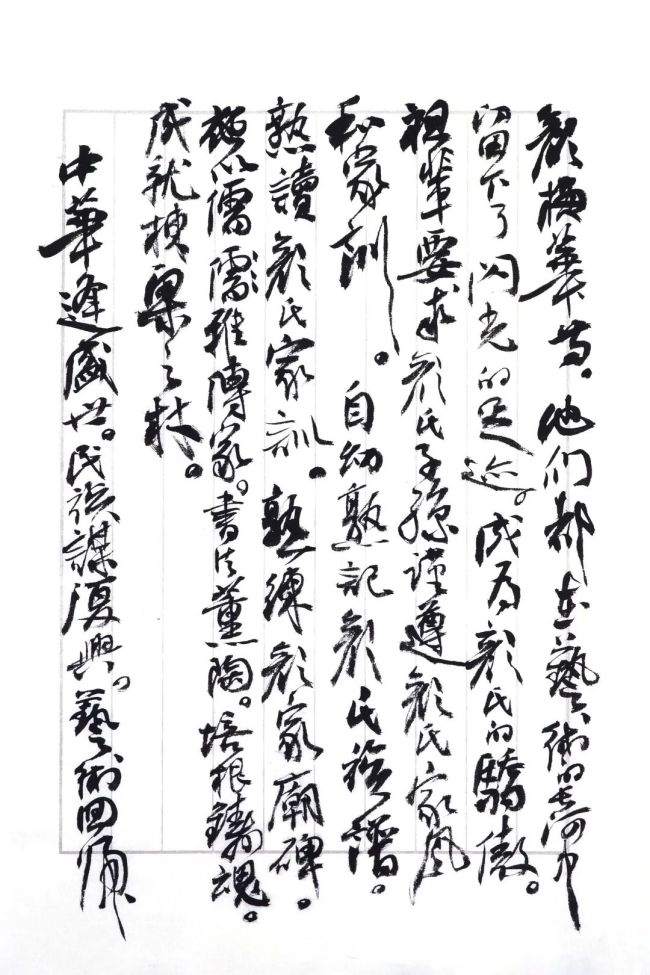 顏梅華等。他们都在藝術的長河中
留下了闪光的足迹。成为顏氏的驕傲。
祖輩要求顏氏子孫謹遵顏氏家風
和家訓。自幼熟記顏氏族譜。
熟讀顏氏家訓。熟練顏家廟碑。
以儒雅傳家。書法薰陶。培根鑄魂。
成就棟梁之材。
中華逢盛世。民族謀復興。藝術回歸